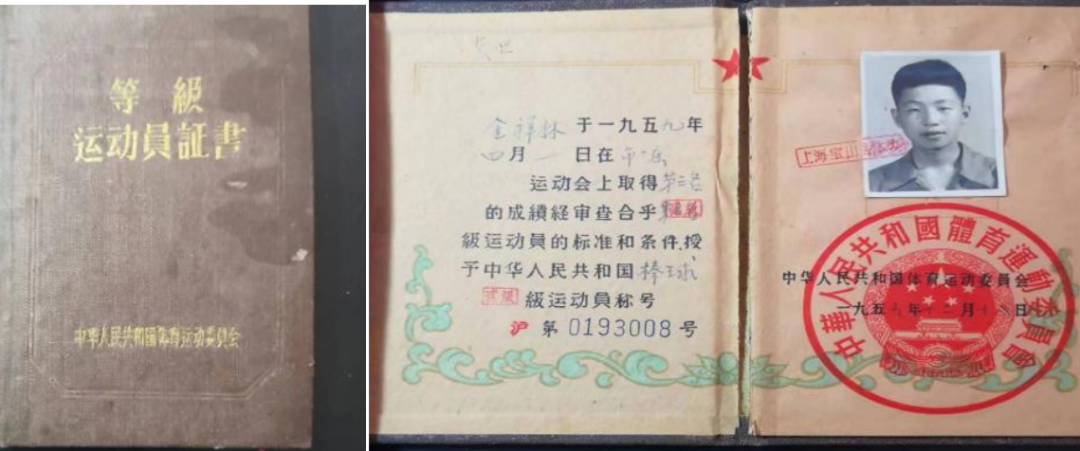 等級
运动員証書
中华人民共和国体育运动委員会
金祥林于一九五九年
四月一日在市一届
运动会上取得第二名
的成績経审查合乎
級运动員的标准和条件,授
予中华人民共和国棒球
貳級級运动員称号
沪第0193008号
上海宝山
中华人民共和国体育运动委員会
一九五九年十二月日
中華人民共和國體育運動委員會